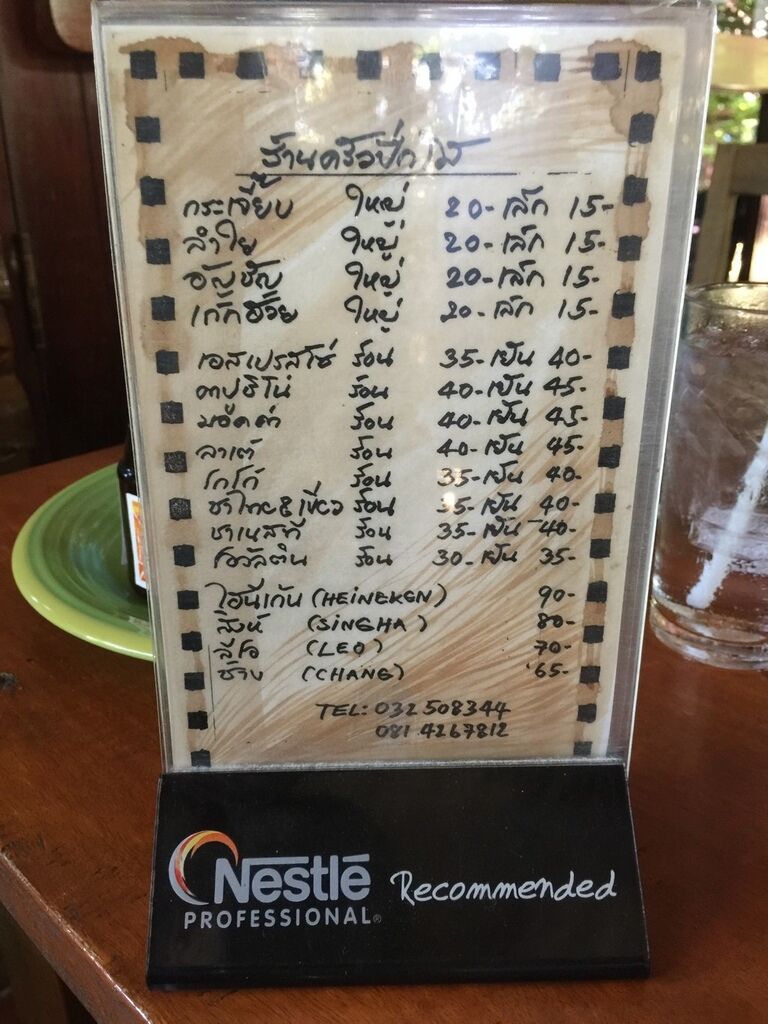 ร้านครัวปีกไม้
กระเจี๊ยบ ใหญ่ 20- เล็ก 15-
ลำใย ใหญ่ 20- เล็ก 15-
อัญชัญ ใหญ่ 20- เล็ก 15-
เก๊กฮวย ใหญ่ 20- เล็ก 15-
เอสเปรสโซ่ ร้อน 35- เย็น 40-
คาปูชิโน่ ร้อน 40- เย็น 45-
มอคค่า ร้อน 40- เย็น 45-
ลาเต้ ร้อน 40- เย็น 45-
โกโก้ ร้อน 35- เย็น 40-
ชาไทย & เขียว ร้อน 35- เย็น 40-
ชาเนสที ร้อน 35- เย็น 40-
โอวัลติน ร้อน 30- เย็น 35-
ไฮเนเก้น (HEINEKEN) 90-
สิงห์ (SINGHA) 80-
ลีโอ (LEO) 70-
ช้าง (CHANG) 65-
TEL: 032 508344
081 4267812
Nestlé Recommended
PROFESSIONAL®